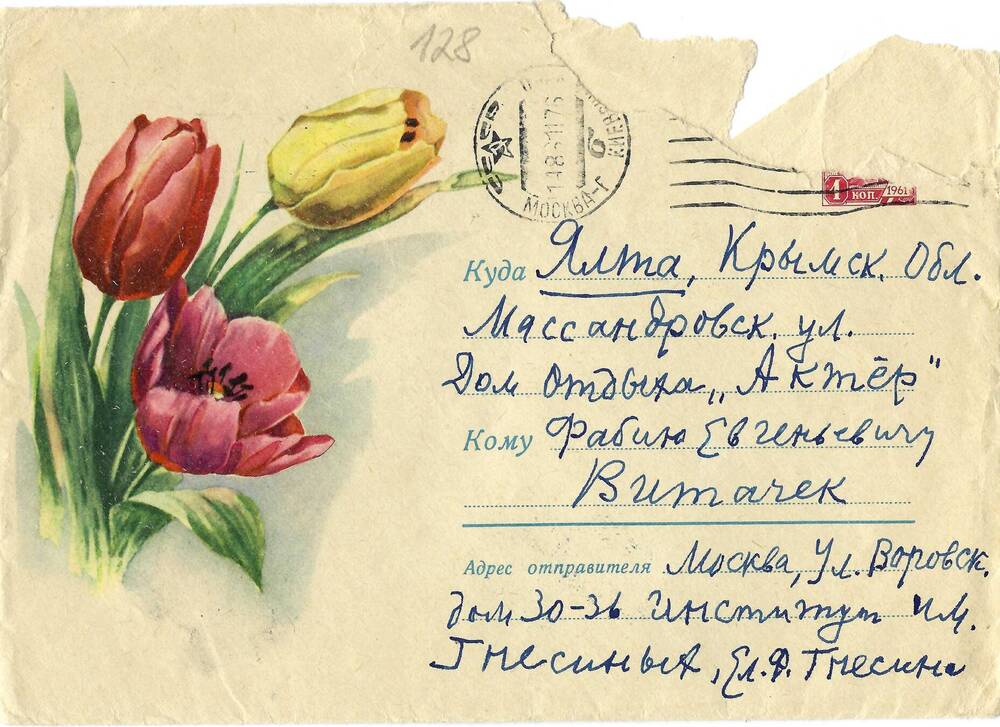 128
СССР
148611176
МОСКВА-Г
6
4 коп. 1961
Куда Ялта, Крымск. Обл.
Массандровск. ул.
Дом отдыха „Актёр"
Кому Фабию Евгеньевичу
Витачек
Адрес отправителя Москва, Ул. Воровск.
дом 30-36 Институт им.
Гнесиных, Ел.Ф. Гнесина